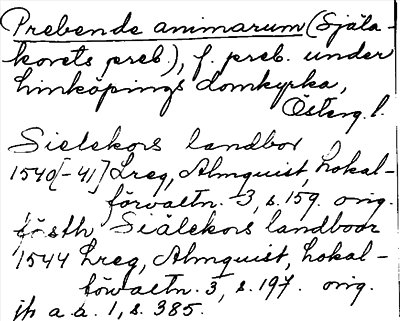 Prebende animarum (Själa-
korets preb.), f. preb. under
Linköpings domkyrka,
Österg. l.
Sielekors landbor
1540[-41] Lreg, Almquist, Lokal-
förvaltn. 3, s. 159. orig.
förtn Siälekors landboor
1544 Lreg, Almquist, Lokal-
förvaltn. 3, s. 197. orig.
jfr a a. 1, s. 385.